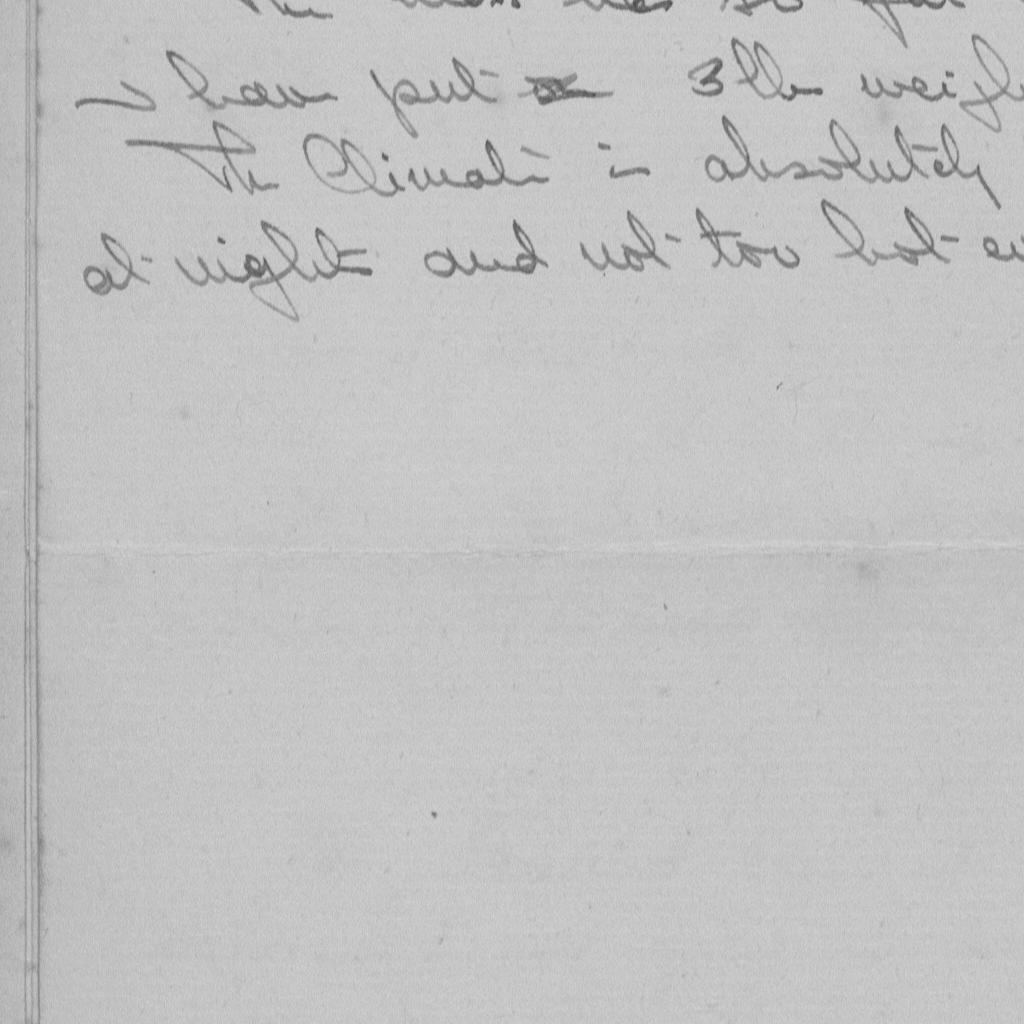 so far
have put 3 lb weigh
The Climate is absolutely
at night and not too hot